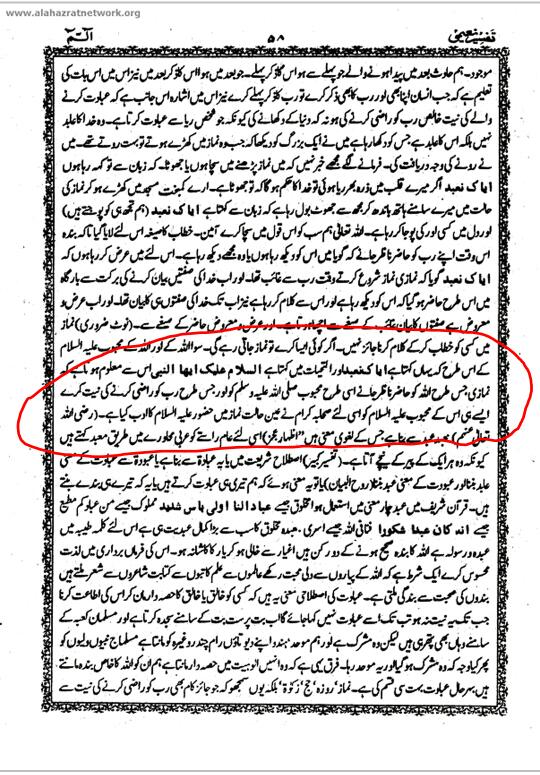 www.alahazratnetwork.org
تفسیر نعیمی ۵۸ الٓمّٓ
موجود۔ ہم حادث بعد میں پیدا ہونے والے جو پہلے سے ہو اس کا ذکر پہلے۔ جو بعد میں ہوا اس کا ذکر بعد میں نیز اس میں اس بات کی
تعلیم ہے کہ جب انسان اپنا بھی اور رب کا بھی ذکر کرے تو رب کو پہلے کرے نیز اس میں اشارہ اس جانب ہے کہ عبادت کرنے
والے کی نیت خالص رب کو راضی کرنے کی ہو نہ کہ دنیا کے دکھانے کی کیونکہ جو شخص ریا سے عبادت کرتا ہے۔ وہ خدا کا عابد
نہیں بلکہ اس کا عابد ہے جس کو دکھا رہا ہے میں نے ایک بزرگ کو دیکھا کہ جب وہ نماز میں کھڑے ہوتے تو بہت روتے تھے۔ میں
نے رونے کی وجہ دریافت کی۔ فرمانے لگے مجھے خبر نہیں کہ میں نماز پڑھنے میں سچا ہوں یا جھوٹا۔ کہ زبان سے تو کہہ رہا ہوں
ایاک نعبد اگر میرے قلب میں ذرہ بھر ریا ہوئی تو خدا کا حکم ہو گا کہ تو جھوٹا ہے۔ ارے کمبخت مسجد میں کھڑے ہو کر نماز کی
حالت میں میرے سامنے ہاتھ باندھ کر مجھ سے جھوٹ بول رہا ہے کہ زبان سے کہتا ہے ایاک نعبد (ہم تجھ ہی کو پوجتے ہیں)
اور دل میں کسی اور کی پوجا کر رہا ہے۔ اللہ تعالیٰ ہم سب کو اس قول میں سچا کرے آمین۔ خطاب کا صیغہ اس لئے لایا گیا تاکہ بندہ
اس وقت اپنے رب کو حاضر ناظر جانے کہ گویا میں اس کو دیکھ رہا ہوں یا وہ مجھے دیکھ رہا ہے۔ اس لئے میں عرض کر رہا ہوں کہ
ایاک نعبد گویا کہ نمازی نماز شروع کرتے وقت رب سے غائب تھا۔ اور اب خدا کی صفتیں بیان کرنے کی برکت سے بارگاہ
میں اس طرح حاضر ہو گیا کہ اس کو دیکھ رہا ہے اور اس سے کلام کر رہا ہے نیز اب تک خدا کی صفتوں ہی کا بیان تھا۔ اور اب عرض و
معروض ہے صفتوں کا بیان غائب کے صیغے سے اچھا ہوتا ہے۔ اور عرض و معروض حاضر کے صیغے سے۔ (نوٹ ضروری) نماز
میں کسی کو خطاب کر کے کلام کرنا جائز نہیں۔ اگر کوئی ایسا کرے تو نماز جاتی رہے گی۔ سوا اللہ کے اور اللہ کے محبوب علیہ السلام
کے اس طرح کہ یہاں کہتا ہے ایاک نعبد اور التحیات میں کہتا ہے السلام علیک ایھا النبی اس سے معلوم ہوتا ہے کہ
نمازی جس طرح اللہ کو حاضر ناظر جانے اسی طرح محبوب صلی اللہ علیہ وسلم کو اور جس طرح رب کو راضی کرنے کی نیت کرے
ایسے ہی اس کے محبوب علیہ السلام کو اسی لئے صحابہ کرام نے عین حالت نماز میں حضور علیہ السلام کا ادب کیا ہے۔ (رضی اللہ
تعالیٰ عنہم) عبد سے بنا ہے جس کے لغوی معنی ہیں "اظہار عجز" اسی لئے عام راستے کو عربی محاورے میں طریق معبد کہتے ہیں
کیونکہ وہ ہر ایک کے پیر کے نیچے آتا ہے۔ (تفسیر کبیر) اصطلاح شریعت میں یا یہ عبادۃ سے بنا ہے یا عبودۃ سے عبادت کے معنی
عابد بننا اور عبودت کے معنی عبد بننا (روح البیان) یا تو یہ معنی ہوئے کہ ہم تیری ہی عبادت کرتے ہیں یا یہ کہ تیرے ہی بندے بنتے
ہیں۔ قرآن شریف میں عبد چار معنی میں استعمال ہوا مخلوق جیسے عبادا لنا اولی باس شدید مملوک جیسے من عبادکم مطیع
جیسے انہ کان عبدا شکورا فنافی اللہ جیسے اسری بعبدہ مخلوق کا سب سے بڑا کمال عبدیت ہی ہے اس لئے کلمہ طیبہ میں
عبدہ ورسولہ ہے اللہ کا بندہ صحیح ہونے کے دو رکن ہیں اغیار سے خالی ہو کر یار کا کاشانہ ہو۔ اس کی فرماں برداری میں لذت
محسوس کرے ایک شرط ہے کہ اللہ کے پیاروں سے دلی محبت رکھے عالموں سے علم کاتبوں سے کتابت شاعروں سے شعر ملتے ہیں
بندوں کی صحبت سے بندگی ملتی ہے۔ عبادت کی اصطلاحی معنی یہ ہیں کہ کسی کو خالق یا خالق کا حصہ دار مان کر اس کی اطاعت کرنا
جب تک یہ نیت نہ ہو تب تک اسے عبادت نہیں کہا جائے گا بت پرست بت کے سامنے سجدہ کرتا ہے اور مسلمان کعبہ کے
سامنے وہاں بھی پتھر ہی ہیں لیکن وہ مشرک ہے اور ہم موحد ہندو اپنے دیوتاؤں رام چندر وغیرہ کو مانتا ہے مسلمان نبیوں ولیوں کو
پھر کیا وجہ کہ وہ مشرک ہو گیا اور یہ موحد رہا۔ فرق یہی ہے کہ وہ انہیں الوہیت میں حصہ دار مانتا ہے ہم ان کو اللہ کا خاص بندہ مانتے
ہیں بہرحال عبادت بہت سی قسم کی ہے۔ نماز' روزہ' حج' زکوٰۃ' بلکہ یوں سمجھو کہ جو جائز کام بھی رب کو راضی کرنے کی نیت سے